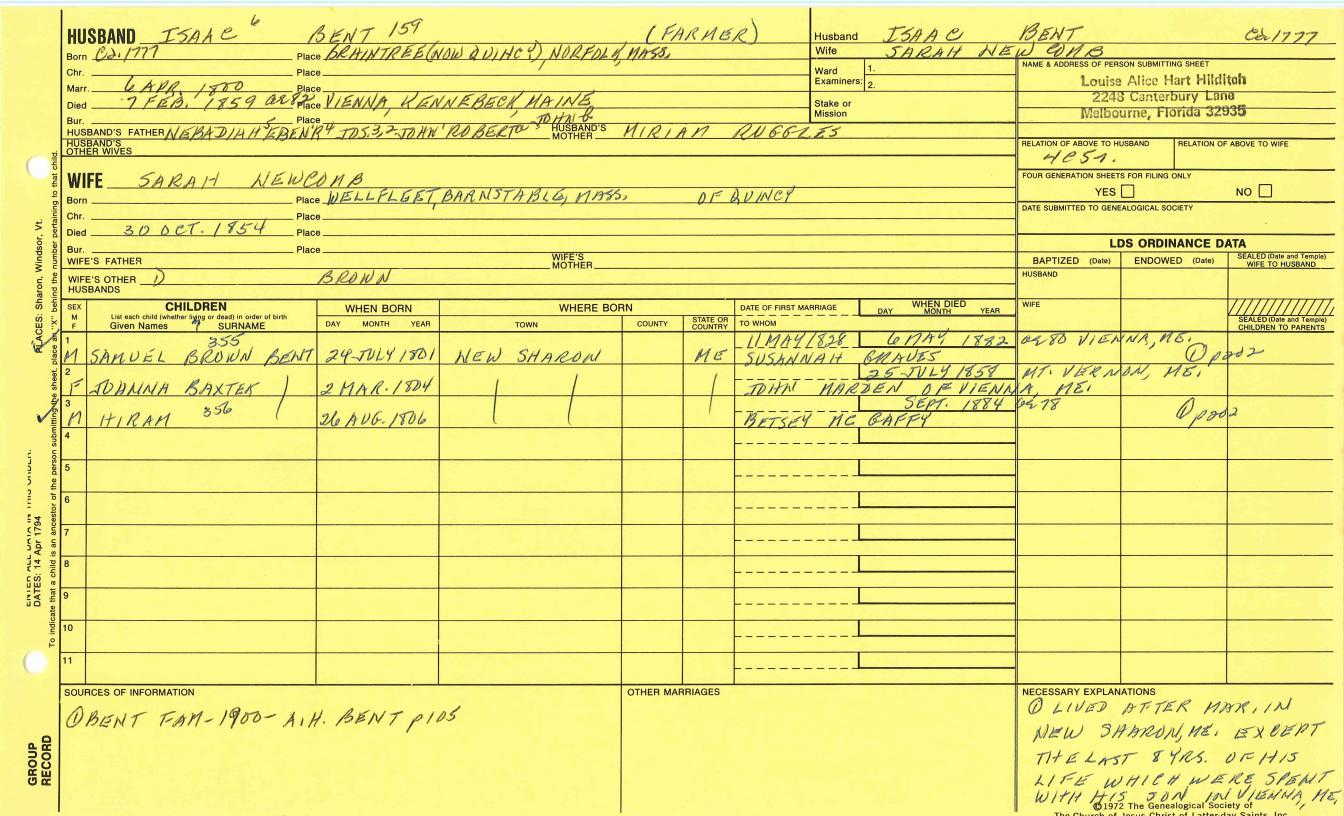 HUSBAND ISAAC 6 BENT 159 (FARMER)
Born Ca. 1777 Place BRAINTREE (NOW QUINCY), NORFOLK, MASS.
Chr. Place
Marr. 6 APR. 1800 Place
Died 7 FEB. 1859 ae 82 Place VIENNA, KENNEBECK, MAINE
Bur. Place
HUSBAND'S FATHER NEBADIAH 5 EBEN'R 4 JOS 3,2 JOHN 1 ROBERT JOHN HUSBAND'S MOTHER MIRIAM RUGGLES
HUSBAND'S OTHER WIVES
WIFE SARAH NEWCOMB
Born Place WELLFLEET, BARNSTABLE, MASS. OF QUINCY
Chr. Place
Died 30 OCT. 1854 Place
Bur. Place
WIFE'S FATHER WIFE'S MOTHER
WIFE'S OTHER HUSBANDS D BROWN
Husband ISAAC BENT Ca 1777
Wife SARAH NEWCOMB
Ward Examiners: 1.
2.
Stake or Mission
NAME & ADDRESS OF PERSON SUBMITTING SHEET
Louise Alice Hart Hilditch
2248 Canterbury Lane
Melbourne, Florida 32935
RELATION OF ABOVE TO HUSBAND RELATION OF ABOVE TO WIFE
FOUR GENERATION SHEETS FOR FILING ONLY
YES NO
DATE SUBMITTED TO GENEALOGICAL SOCIETY
LDS ORDINANCE DATA
BAPTIZED (Date) ENDOWED (Date) SEALED (Date and Temple) WIFE TO HUSBAND
HUSBAND
WIFE
SEALED (Date and Temple) CHILDREN TO PARENTS
SEX M F CHILDREN WHEN BORN WHERE BORN DATE OF FIRST MARRIAGE WHEN DIED
List each child (whether living or dead) in order of birth
Given Names 7 SURNAME DAY MONTH YEAR TOWN COUNTY STATE OR COUNTRY TO WHOM DAY MONTH YEAR
1 355 11 MAY 1828 6 MAY 1882 ae 80 VIENNA, ME.
M SAMUEL BROWN BENT 29 JULY 1801 NEW SHARON ME SUSANNAH GRAVES ① p202
2 25 JULY 1859 MT. VERNON, ME.
F JOANNA BAXTER 2 MAR. 1804 JOHN MARDEN OF VIENNA, ME.
3 356 SEPT. 1884 ae 78
M HIRAM 26 AUG. 1806 BETSEY MC GAFFY ① p202
4
5
6
7
8
9
10
11
SOURCES OF INFORMATION
① BENT FAM - 1900 - A.H. BENT p105
OTHER MARRIAGES
NECESSARY EXPLANATIONS
① LIVED AFTER MAR. IN
NEW SHARON, ME. EXCEPT
THE LAST 8 YRS. OF HIS
LIFE WHICH WERE SPENT
WITH HIS SON IN VIENNA, ME.
©1972 The Genealogical Society of
The Church of Jesus Christ of Latter-day Saints, Inc.
PLACES: Sharon, Windsor, Vt.
To indicate that a child is an ancestor of the person submitting the sheet, place an "X" behind the number pertaining to that child.
ENTER ALL DATA IN THIS ORDER:
DATES: 14 Apr 1794
GROUP
RECORD